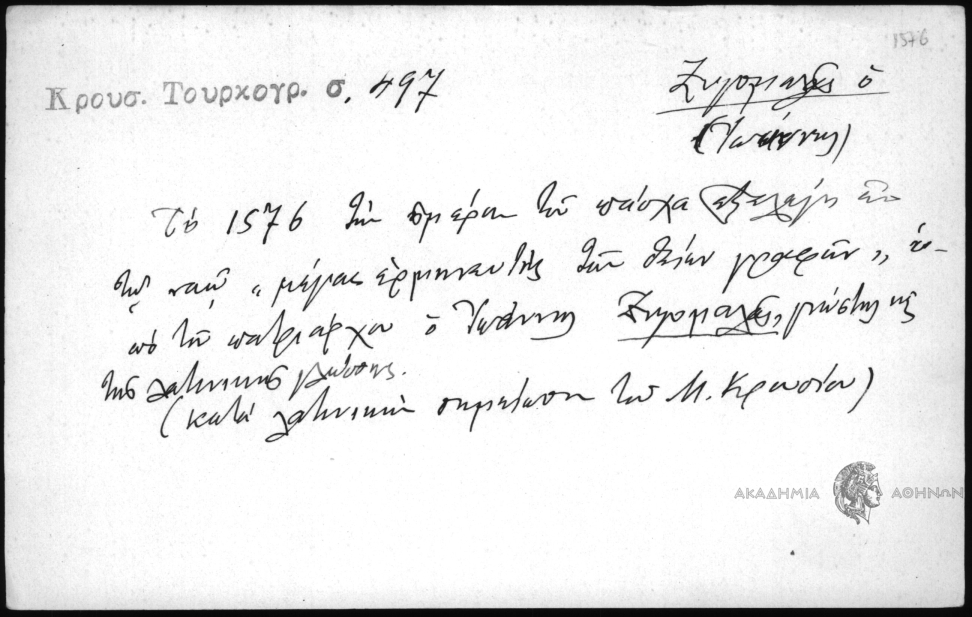 1576
Κρουσ. Τουρκογρ. σ. 497
Ζυγομαλᾶς ὁ
(Ἰωάννης)
Τὸ 1576 τὴν ἡμέραν τοῦ πάσχα ἐξελέγη ἐν
τῷ ναῷ „ μέγας ἑρμηνευτὴς τῶν θείων γραφῶν „ ὑ-
πὸ τοῦ πατριάρχου ὁ Ἰωάννης Ζυγομαλᾶς, γνώστης
τῆς λατινικῆς γλώσσης.
(κατὰ λατινικὴν σημείωσιν τοῦ Μ. Κρουσίου)
ΑΚΑΔΗΜΙΑ ΑΘΗΝΩΝ